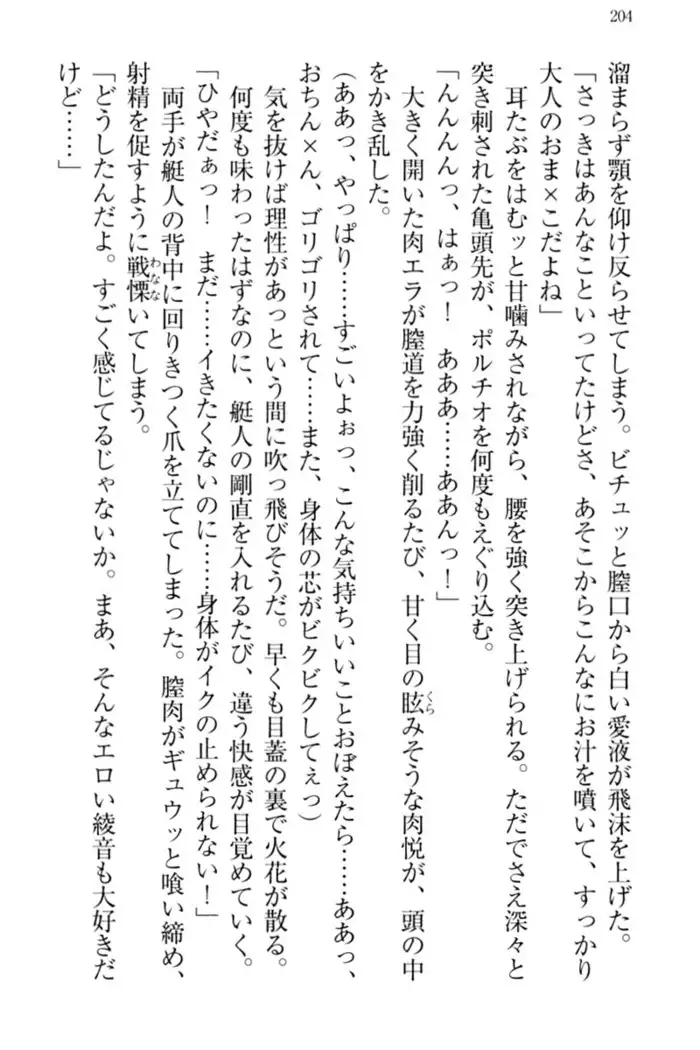 204
溜まらず顎を仰け反らせてしまう。ビチュッと膣口から白い愛液が飛沫を上げた。
「さっきはあんなこといってたけどさ、あそこからこんなにお汁を噴いて、すっかり
大人のおま×こだよね」
耳たぶをはむッと甘噛みされながら、腰を強く突き上げられる。ただでさえ深々と
突き刺された亀頭先が、ポルチオを何度もえぐり込む。
「んんんんっ、はぁっ！　あああ……ああんっ！」
大きく開いた肉エラが膣道を力強く削るたび、甘く目の眩みそうな肉悦が、頭の中
をかき乱した。
（ああっ、やっぱり……すごいよぉっ、こんな気持ちいいことおぼえたら……ああっ、
おちん×ん、ゴリゴリされて……また、身体の芯がビクビクしてぇっ）
気を抜けば理性があっという間に吹っ飛びそうだ。早くも目蓋の裏で火花が散る。
何度も味わったはずなのに、艇人の剛直を入れるたび、違う快感が目覚めていく。
「ひやだぁっ！　まだ……イきたくないのに……身体がイクの止められない！」
両手が艇人の背中に回りきつく爪を立ててしまった。膣肉がギュウッと喰い締め、
射精を促すように戦慄いてしまう。
「どうしたんだよ。すごく感じてるじゃないか。まあ、そんなエロい綾音も大好きだ
けど……」